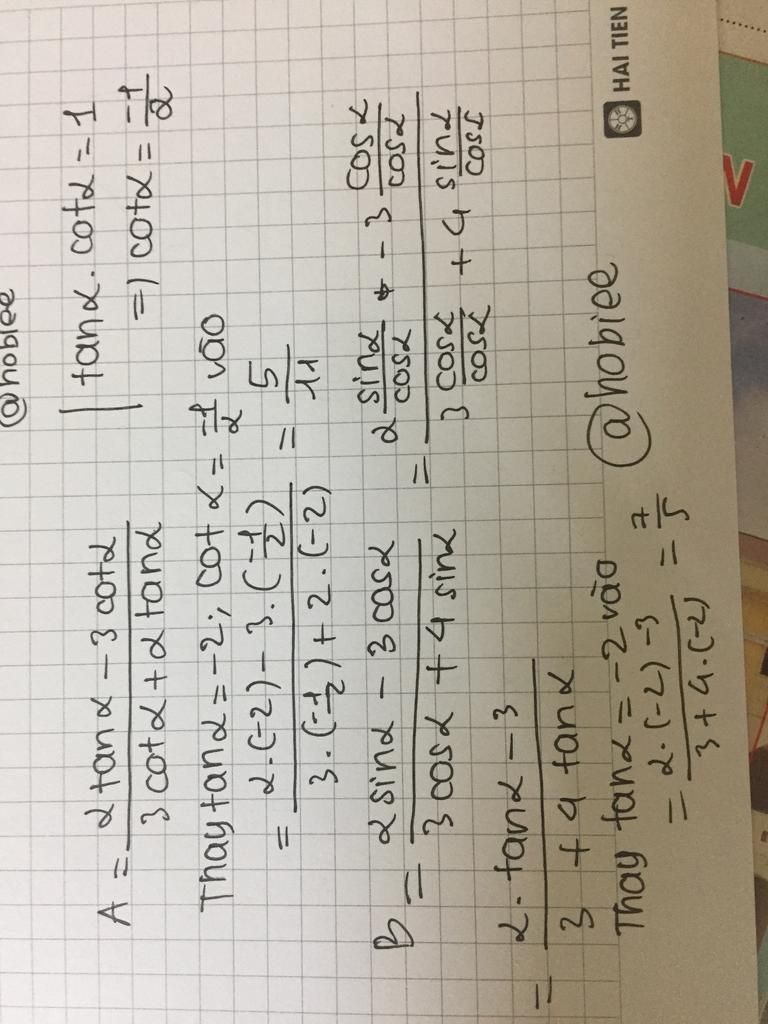 @hobiee
A = \frac{2 tanα - 3 cotα}{3 cotα + 2 tanα} | tanα . cotα = 1
=) cotα = \frac{-1}{2}
Thay tanα = -2; cot α = \frac{-1}{2} vào
= \frac{2.(-2) - 3.(\frac{-1}{2})}{3.(\frac{-1}{2}) + 2.(-2)} = \frac{5}{11}
B = \frac{2 sinα - 3 cosα}{3 cosα + 4 sinα} = \frac{2 \frac{sinα}{cosα} - 3 \frac{cosα}{cosα}}{3 \frac{cosα}{cosα} + 4 \frac{sinα}{cosα}}
= \frac{2. tanα - 3}{3 + 4 tanα}
Thay tanα = -2 vào
= \frac{2.(-2) - 3}{3 + 4.(-2)} = \frac{7}{5}
@hobiee
HAI TIEN
N